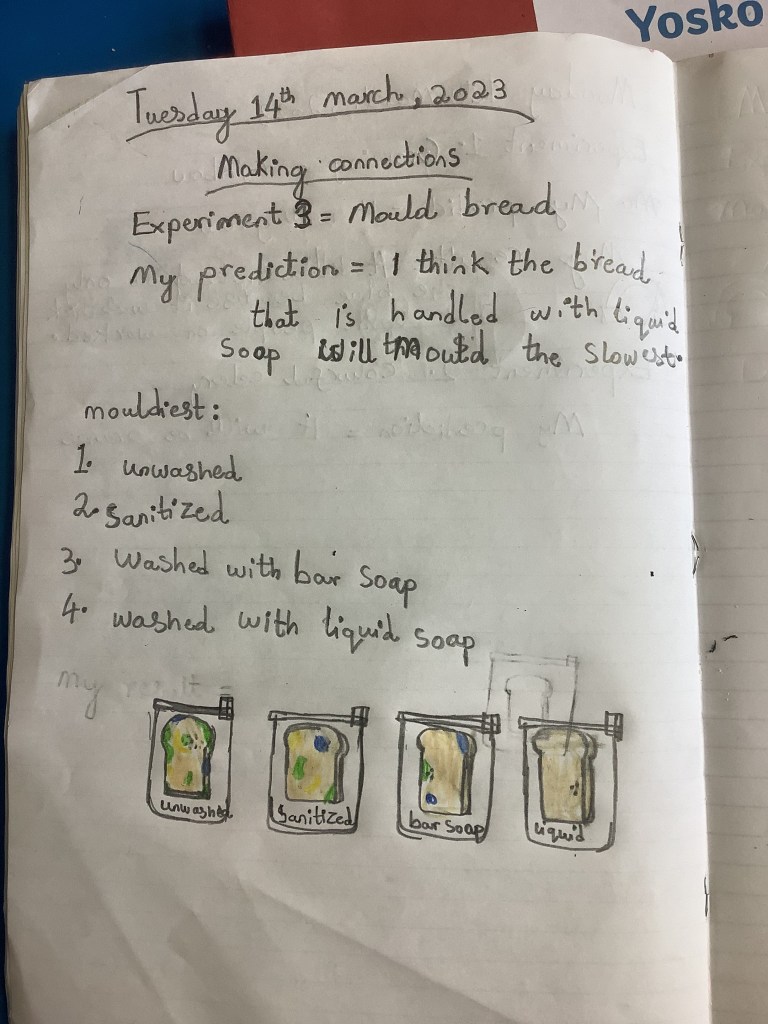 Yosko
Tuesday 14th march, 2023
Making connections
Experiment 3 = Mould bread
My prediction = I think the bread
that is handled with liquid
soap will mould the slowest.
mouldiest:
1. unwashed
2. Sanitized
3. Washed with bar soap
4. washed with liquid soap
My
unwashed
Sanitized
bar soap
liquid